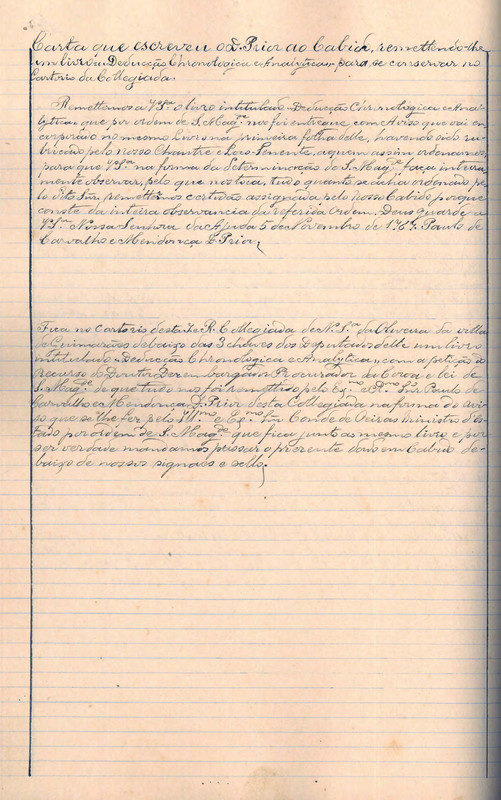 Carta que escreveu o D. Prior ao Cabido, remettendo-lhe
um livro: Deducção Chronologica e Analytica para se conservar no
Cartorio da Collegiada.
Remettemos a VSª o livro intitulado Deducção Chronologica e Ana-
lytica, que por ordem de S. Magᵉ nos foi entregue com Aviso que vai en-
corporado no mesmo Livro na primeira folha delle, havendo sido ru-
bricado pelo nosso Chantre e Lugar-Tenente, a quem assim ordenamos
para que VSª na forma da Determinação de S. Magᵉ faça inteira-
mente observar, pelo que nos toca, tudo quanto se acha ordenado pe-
lo dito Snr. remettemos certidão assignada pelo nosso Cabido porque
conste da inteira observancia da referida Ordem. Deus guarde a
VSª. Nossa Senhora da Ajuda 5 de Novembro de 1767. Paulo de
Carvalho e Mendonça D. Prior
Fica no Cartorio desta I. e R. Collegiada de N. Sª da Oliveira da villa
de Guimarães debaixo das 3 chaves dos Deputados delle um livro
intitulado Deducção Chronologica e Analytica, com a petição de
recurso do Doutor Desembargador Procurador da Coroa e lei de
S. Magᵈᵉ do que tudo nos foi remettido pelo Exᵐᵒ e Rᵐᵒ Snr. Paulo de
Carvalho e Mendonça D. Prior desta Collegiada na forma do avi-
so que se lhe fez pelo Illᵐᵒ e Exᵐᵒ Snr. Conde de Oeiras ministro d'es-
tado por ordem de S. Magᵈᵉ que fica junto ao mesmo livro e por
ser verdade mandamos passar o presente dado em Cabido de-
baixo de nossos signaes e sello.